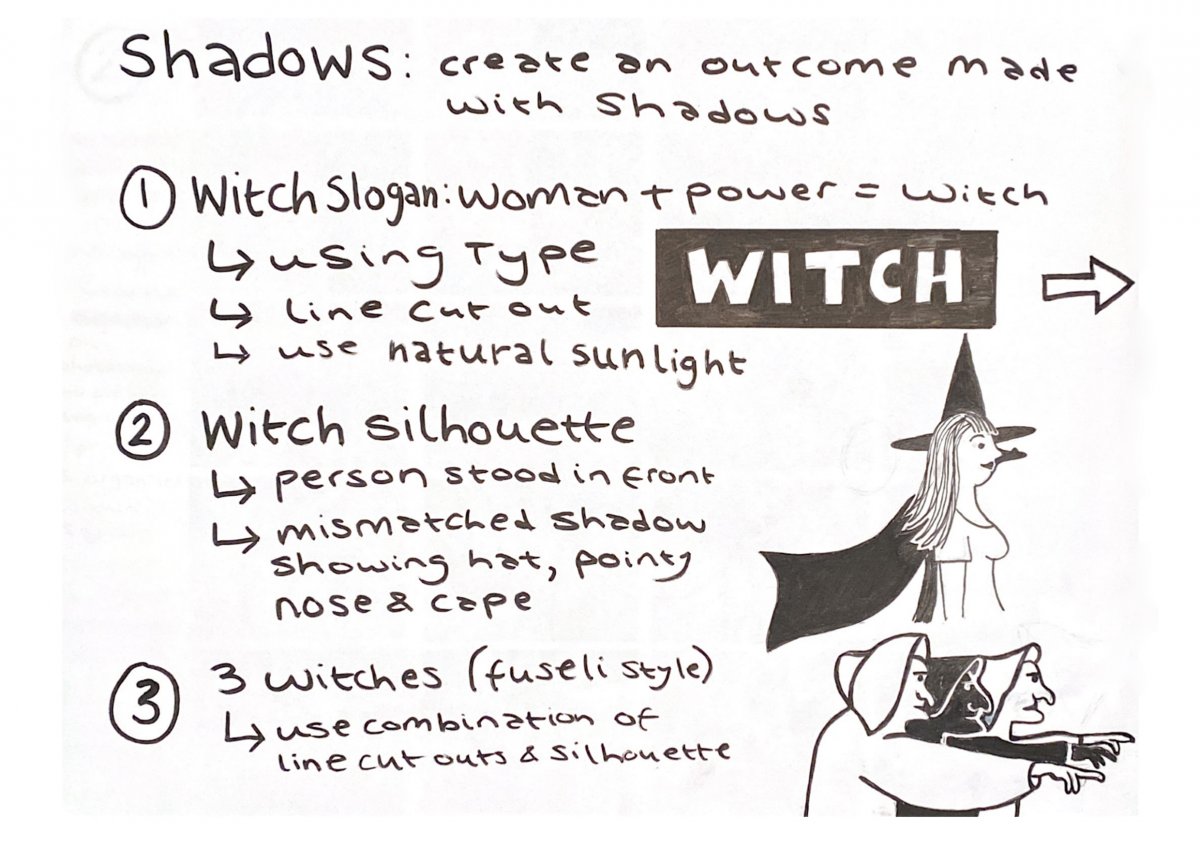 Shadows: create an outcome made
with Shadows
① Witch Slogan: woman + power = witch
↳ using Type
WITCH
↳ line cut out
↳ use natural sunlight
② Witch silhouette
↳ person stood in front
↳ mismatched shadow
showing hat, pointy
nose & cape
③ 3 witches (fuseli style)
↳ use combination of
line cut outs & silhouette